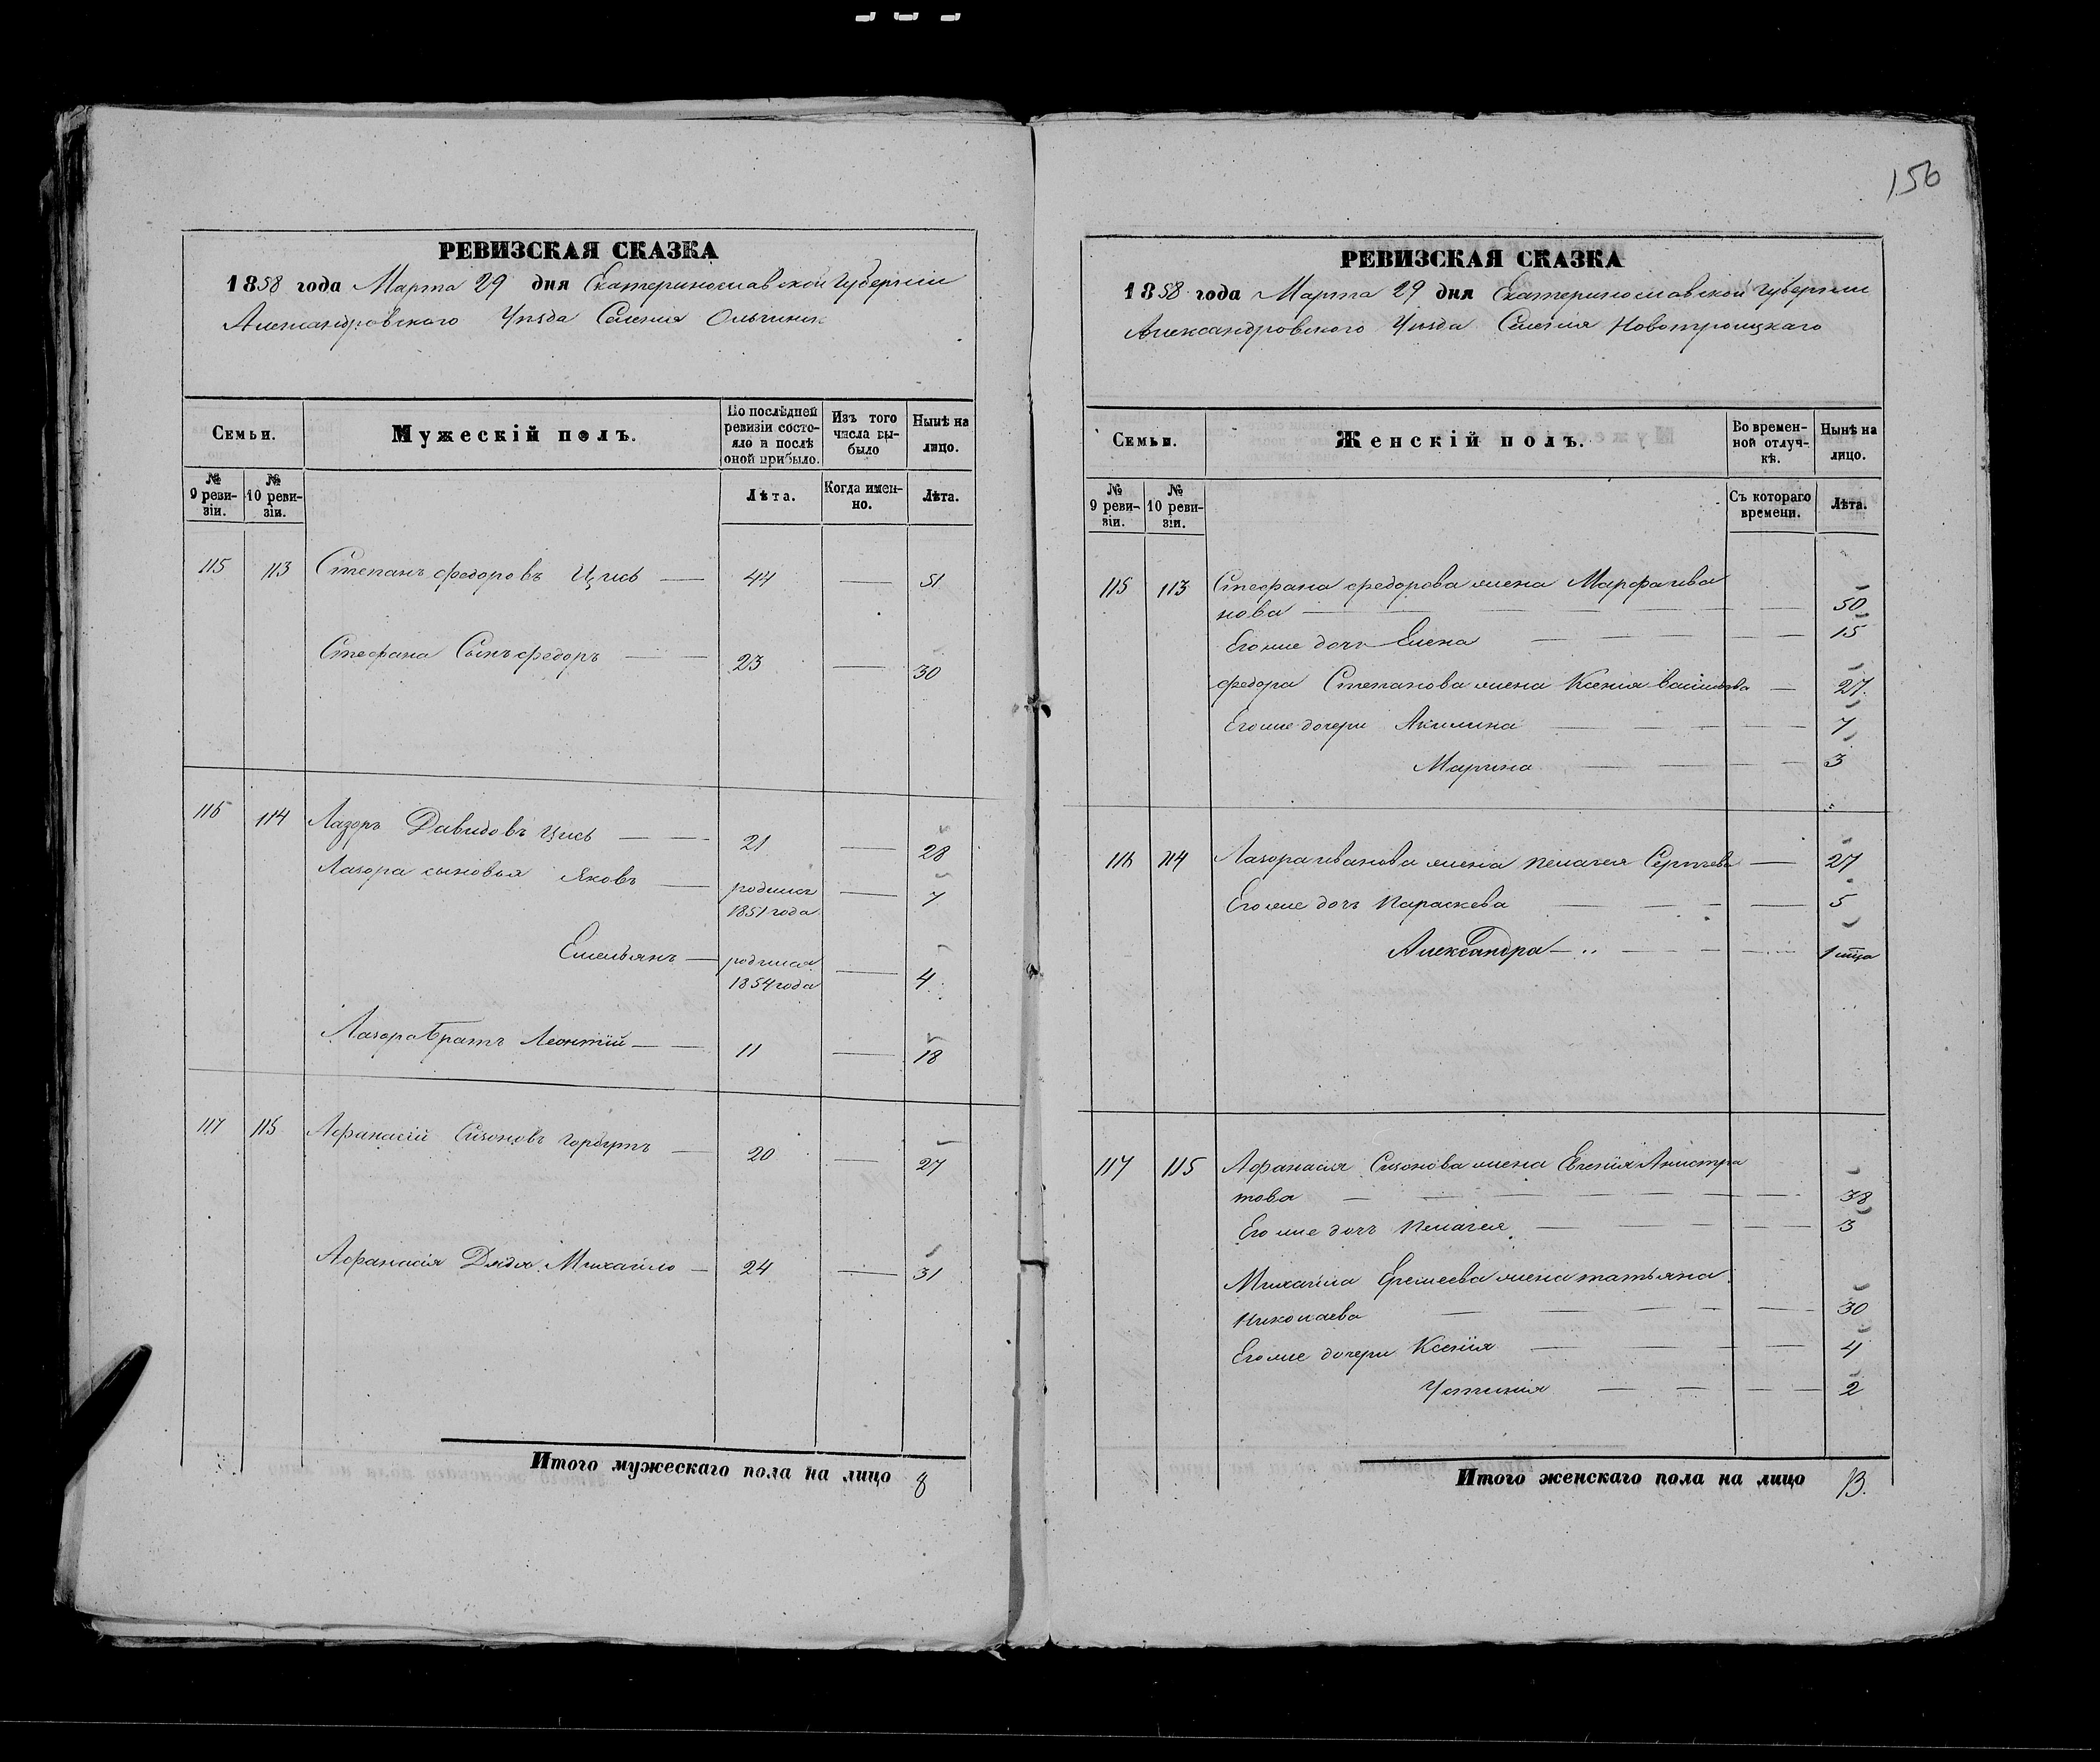 156
РЕВИЗСКАЯ СКАЗКА
1858 года Марта 29 дня Екатеринославской Губернии
Александровского Уезда Селения Ольгинск
Семьи.
Мужескій полъ.
По послѣдней ревизіи состояло и послѣ оной прибыло.
Изъ того числа выбыло
Нынѣ на лицо.
№ 9 ревизіи.
№ 10 ревизіи.
Лѣта.
Когда именно.
Лѣта.
115 113 Степанъ федоровъ Цись — 44 — 51
Стефана Сынъ федоръ — — 23 — 30
116 114 Лазоръ Давидовъ Цись — — 21 — 28
Лазора сыновья Яковъ — родился 1851 года — 7
Емельянъ — родился 1854 года — 4
Лазора братъ Леонтій — — 11 — 18
117 115 Афанасій Сизоновъ Горбутъ — 20 — 27
Афанасія Дядя Михайло — 24 — 31
Итого мужескаго пола на лицо 8
РЕВИЗСКАЯ СКАЗКА
1858 года Марта 29 дня Екатеринославской Губернии
Александровского Уезда Селения Новотроицкаго
Семьи.
Женскій полъ.
Во временной отлучкѣ.
Нынѣ на лицо.
№ 9 ревизіи.
№ 10 ревизіи.
Съ котораго времени.
Лѣта.
115 113 Стефана федорова жена Марфа ива
нова — — — — — 50
Его же дочь Елена — — — — 15
федора Степанова жена Ксенія васильева — 27
Его же дочери Акилина — — — — 7
Марина — — — — 3
116 114 Лазора иванова жена пелагея Сергѣева — 27
Его же дочь Параскева — — — — 5
Александра — — — — 1 мца
117 115 Афанасія Сизонова жена Евгенія Анистра
това — — — — — 38
Его же дочь пелагея — — — — 3
Михайла Еремеева жена татьяна
Николаева — — — — 30
Его же дочери Ксенія — — — — 4
Устинія — — — — 2
Итого женскаго пола на лицо 13.